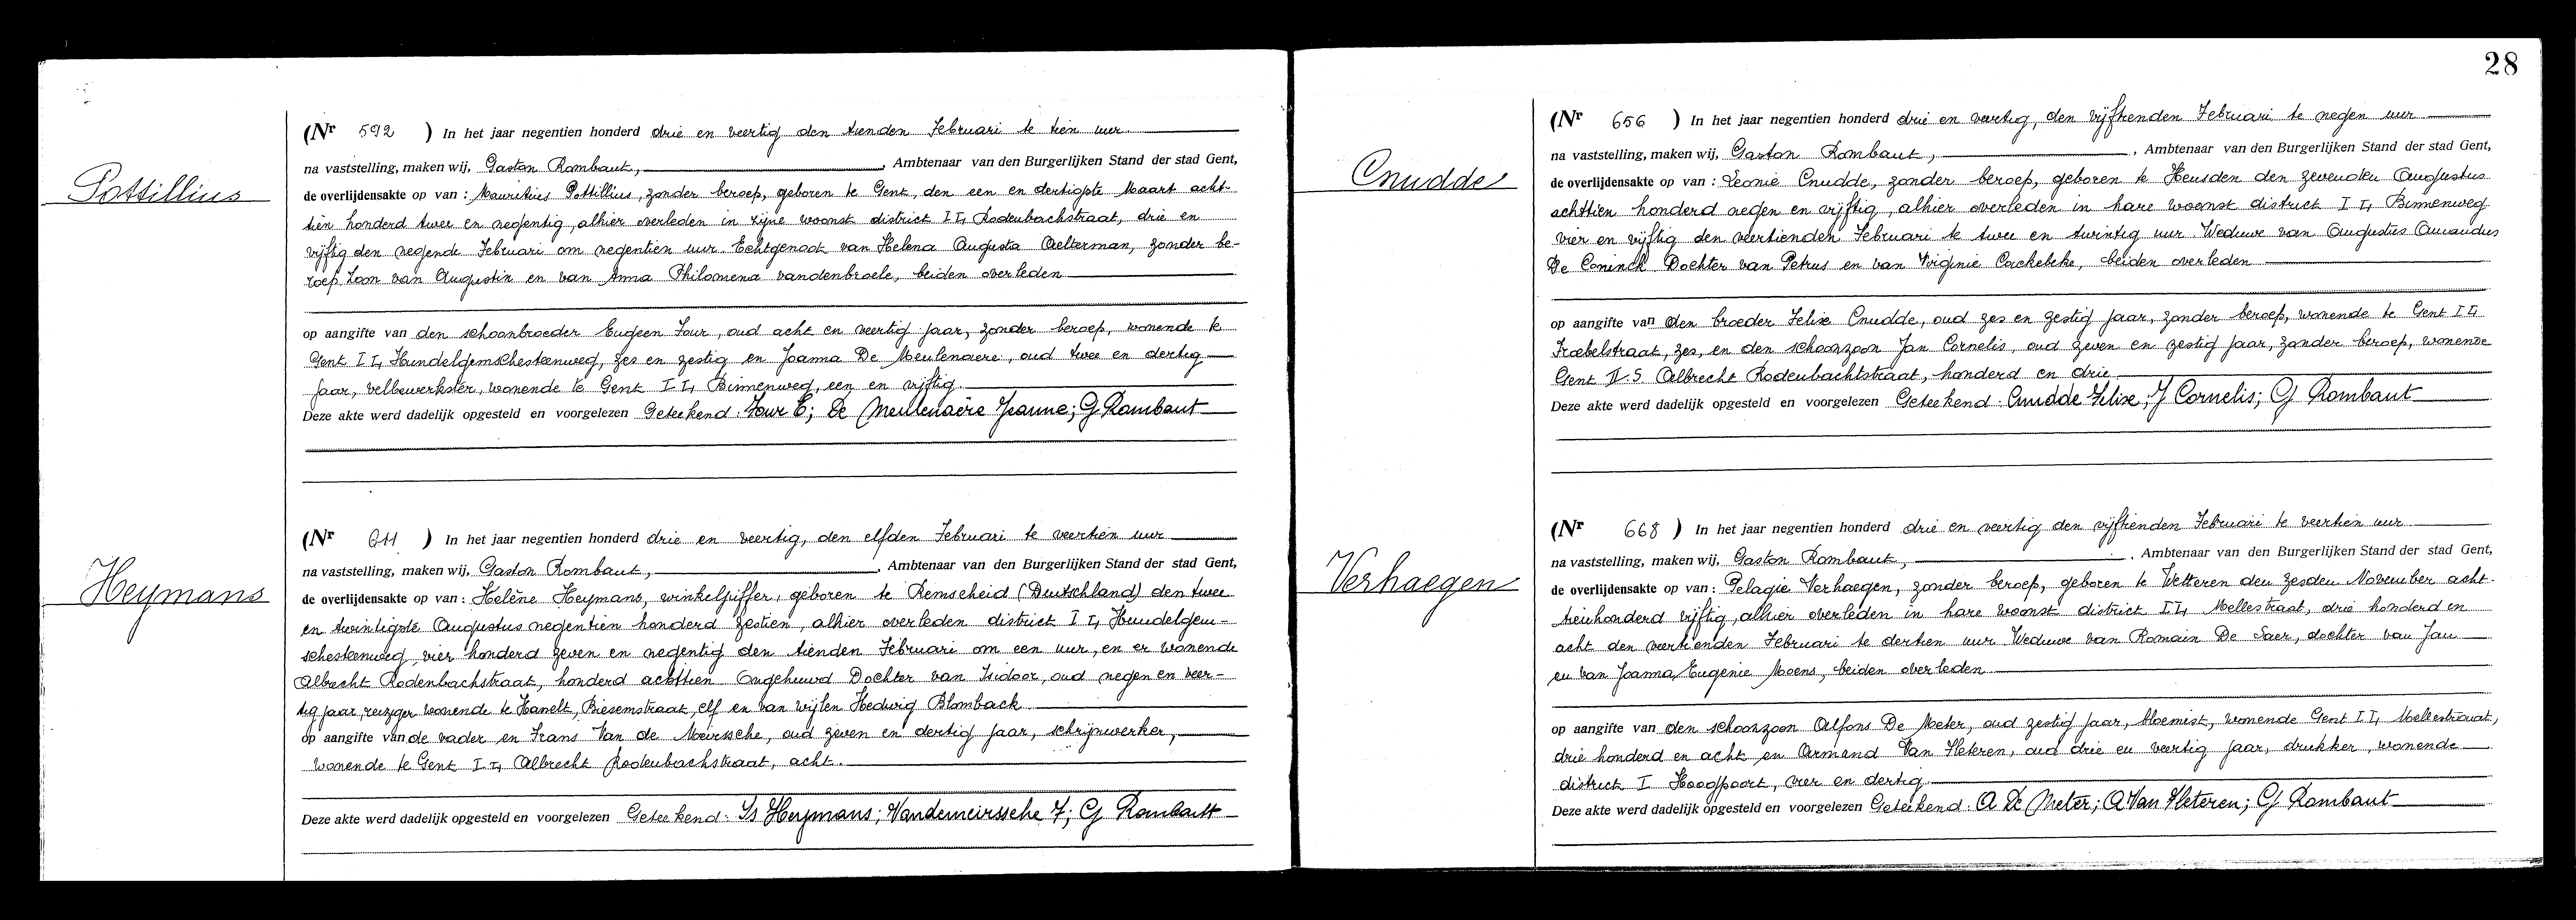 Pottillius
(Nr 592 ) In het jaar negentien honderd drie en veertig den tienden Februari te tien uur
na vaststelling, maken wij, Gaston Rombaut, , Ambtenaar van den Burgerlijken Stand der stad Gent,
de overlijdensakte op van : Mauritius Pottillius, zonder beroep, geboren te Gent, den een en dertigste Maart acht-
tien honderd twee en negentig, alhier overleden in zijne woonst district II, Rodenbachstraat, drie en
vijftig den negende Februari om negentien uur. Echtgenoot van Helena Augusta Aelterman, zonder be-
roep Zoon van Augustin en van Anna Philomena vandenbroele, beiden overleden
op aangifte van den schoonbroeder Eugeen Four, oud acht en veertig jaar, zonder beroep, wonende te
Gent II, Hundelgemschesteenweg, zes en zestig en Joanna De Meulenaere, oud twee en dertig
jaar, velbewerkster, wonende te Gent II, Binnenweg, een en vijftig.
Deze akte werd dadelijk opgesteld en voorgelezen Geteekend: Four E; De Meulenaère Jeanne; G Rombaut
Heymans
(Nr 611 ) In het jaar negentien honderd drie en veertig, den elfden Februari te veertien uur
na vaststelling, maken wij, Gaston Rombaut, , Ambtenaar van den Burgerlijken Stand der stad Gent,
de overlijdensakte op van : Helène Heymans, winkeljuffer, geboren te Remscheid (Duitschland) den twee
en twintigste Augustus negentien honderd zestien, alhier overleden district II, Hundelgem-
schesteenweg vier honderd zeven en negentig den tienden Februari om een uur, en er wonende
Albrecht Rodenbachstraat, honderd achttien Ongehuwd Dochter van Isidoor, oud negen en veer-
tig jaar, reiziger wonende te Hasselt, Biesemstraat, elf en van wijlen Hedwig Blomback
op aangifte van de vader en Frans Van de Meirssche, oud zeven en dertig jaar, schrijnwerker,
wonende te Gent II, Albrecht Rodenbachstraat, acht.
Deze akte werd dadelijk opgesteld en voorgelezen Geteekend: Is Heymans; Vandemeirssche F; G Rombaut
28
Cnudde
(Nr 656 ) In het jaar negentien honderd drie en veertig, den vijftienden Februari te negen uur
na vaststelling, maken wij, Gaston Rombaut, , Ambtenaar van den Burgerlijken Stand der stad Gent,
de overlijdensakte op van : Leonie Cnudde, zonder beroep, geboren te Heusden den zevenden Augustus
achttien honderd negen en vijftig, alhier overleden in hare woonst district II, Binnenweg
vier en vijftig den veertienden Februari te twee en twintig uur. Weduwe van Augustus Amandus
De Coninck Dochter van Petrus en van Virginie Cackebeke, beiden overleden
op aangifte van den broeder Felix Cnudde, oud zes en zestig jaar, zonder beroep, wonende te Gent II,
Froebelstraat, zes, en den schoonzoon Jan Cornelis, oud zeven en zestig jaar, zonder beroep, wonende
Gent II.S. Albrecht Rodenbachtstraat, honderd en drie
Deze akte werd dadelijk opgesteld en voorgelezen Geteekend: Cnudde Felix; J Cornelis; G Rombaut
Verhaegen
(Nr 668 ) In het jaar negentien honderd drie en veertig den vijftienden Februari te veertien uur
na vaststelling, maken wij, Gaston Rombaut, , Ambtenaar van den Burgerlijken Stand der stad Gent,
de overlijdensakte op van : Pelagie Verhaegen, zonder beroep, geboren te Wetteren den zesden November acht-
tienhonderd vijftig, alhier overleden in hare woonst district II, Mellestraat, drie honderd en
acht den veertienden Februari te dertien uur Weduwe van Romain De Saer, dochter van Jan
en van Joanna Eugenie Moens, beiden overleden
op aangifte van den schoonzoon Alfons De Meter, oud zestig jaar, bloemist, wonende Gent II, Mellestraat,
drie honderd en acht en Armand Van Heteren, oud drie en veertig jaar, drukker, wonende
district I Hoogpoort, vier en dertig.
Deze akte werd dadelijk opgesteld en voorgelezen Geteekend: A De Meter; A Van Heteren; G Rombaut